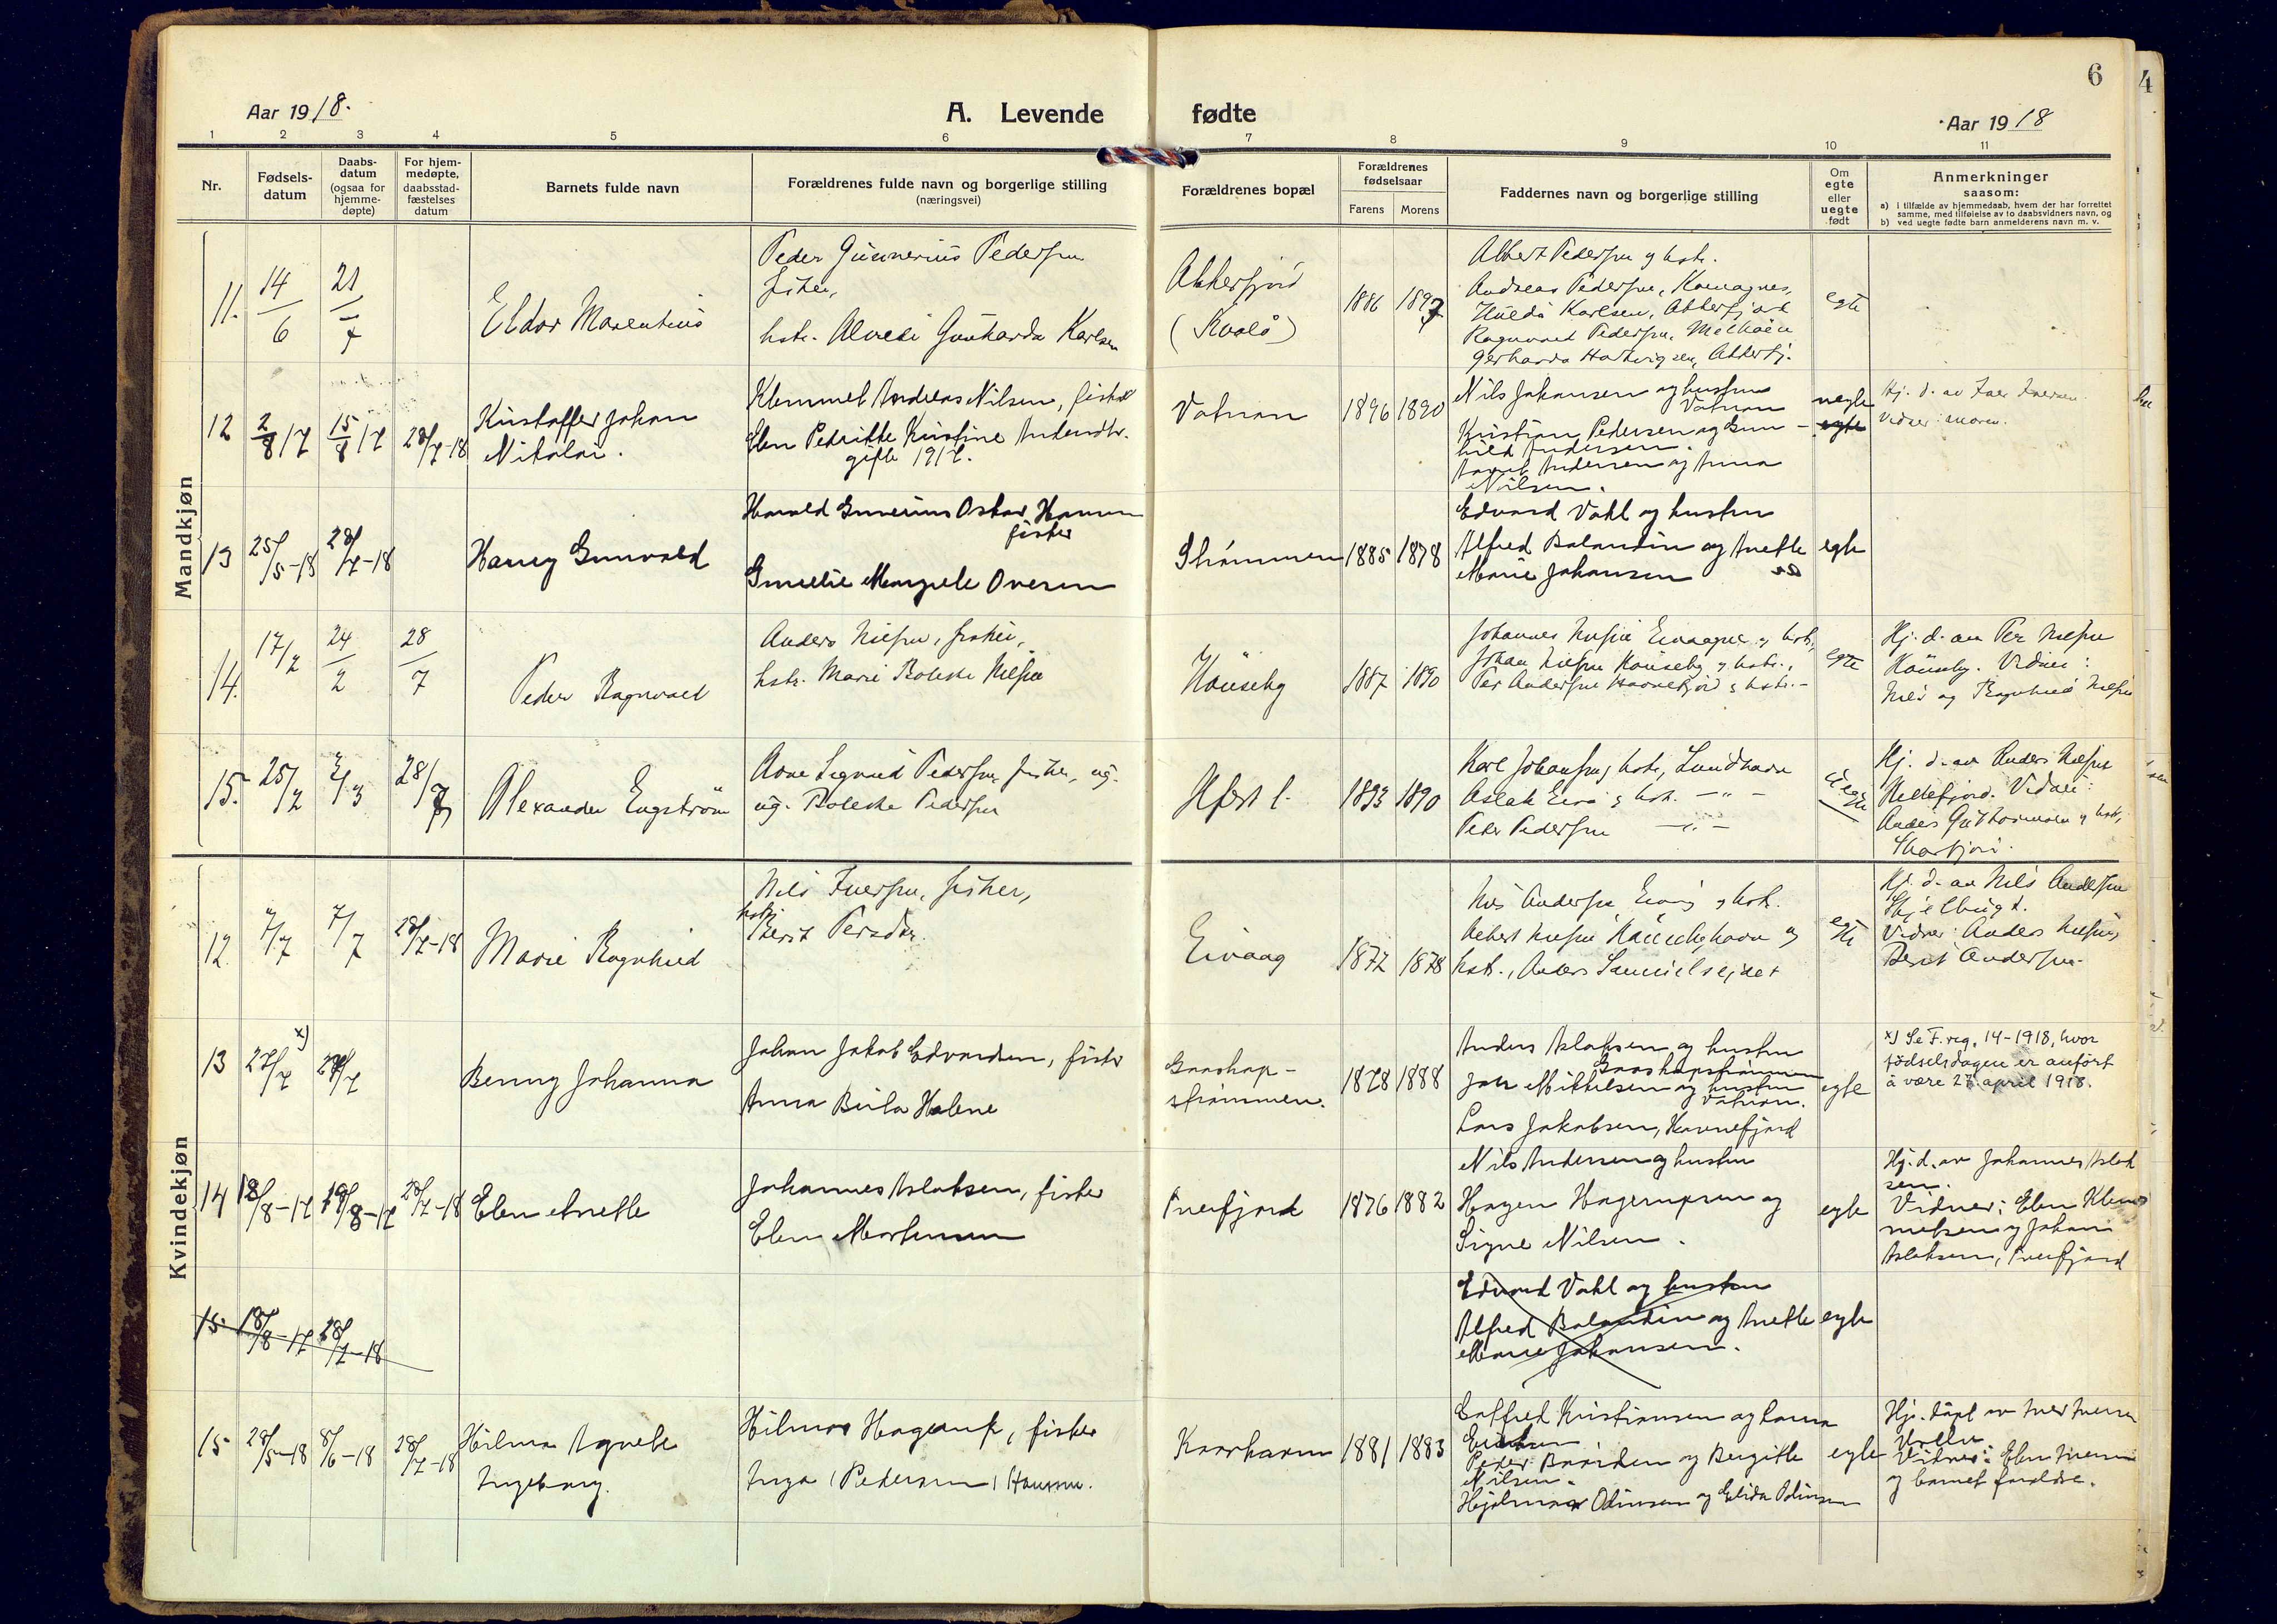 6
4
Aar 1918.
A. Levende fødte
Aar 1918
1 2 3 4 5 6 7 8 9 10 11
Nr.
Fødsels-
datum
Daabs-
datum
(ogsaa for
hjemme-
døpte)
For hjem-
medøpte,
daabsstad-
fæstelses
datum
Barnets fulde navn
Forældrenes fulde navn og borgerlige stilling
(næringsvei)
Forældrenes bopæl
Forældrenes
fødselsaar
Farens
Morens
Faddernes navn og borgerlige stilling
Om
egte
eller
uegte
født
Anmerkninger
saasom:
a) i tilfælde av hjemmedaab, hvem der har forrettet
samme, med tilføielse av to daabsvidners navn, og
b) ved uegte fødte barn anmelderens navn m. v.
Mandkjøn
11.
14/6
21/7
Eldor Marentius
Peder Gunnerius Pedersen
fisker,
hstr. Karlsen
Akkerfjord
(Kvalø)
1886
1897
Albert Pedersen g hstr.
Andreas Pedersen, Komagnes,
Hulda Karlsen, Akkerfjord
Ragnvald Pedersen,
Gerharda Hartvigsen, Akkerfj.
egte
12
2/8 17
15/8 17
28/7-18
Kristoffer Johan
Nikolai.
Klemmet Andreas Nilsen, fisker
Elen Petrikke Kristine Andersdtr.
gifte 1917.
Vatnan
1896
1890
Nils Johansen og hustru
Vatnan
Kristian Pedersen og Gun-
hild Andersen.
Andersen og Anna
Nilsen.
uegte
egte
Hj. d. av Iver Iversen.
Vidner: moren.
13
25/5-18
28/7-18
Harry Gunvald
Harald Oskar Hansen
fisker
Margrete Ovesen
Strømmen
1885
1878
Edvard Vahl og hustru
Alfred Balandin og Anette
Marie Johansen
egte
14.
17/2
24/2
28/7
Peder Ragnvald
Anders Nilsen, fisker,
hstr. Marie Boleke Nilsen
Kouseby
1887
1890
Johannes Nilsen Eivaagne g hstr,
Johan Nilsen Kouseby g hstr.,
Per Andersen g hstr.-
egte
Hj. d. av Per Nilsen
Kouseby. Vidner:
Nils og Ragnhild Nilsen
15.
25/2
2/3
28/7
Alexander Engstrøm
Arne Sigvald Pedersen fisker, ug.
ug. Boleke Pedersen
Hfest l.
1893
1890
Karl Johansen g hstr, Lundhavn
Aslak g hstr. - " -
Peder Pedersen - " -
uegte
Hj. d. av Anders Nilsen
Kellefjord. Vidner:
Anders Guttormsen g hstr,
Kvindekjøn
12.
4/7
7/7
28/7-18
Marie Ragnhild
Nils Iversen, fisker,
hstr.
Berit Persdtr.
Eivaag
1872
1878
Nils Andersen Eivaag g hstr.
Albert Nilsen g
hstr., Anders Samuelsejdet
egte
Hj. d. av Nils Andersen
Skjelbugt.
Vidner: Anders Nilsen,
Berit Andersen.
13
27/7 x)
28/7
Benny Johanna
Johan Jakob Edvardsen, fisker
Anna Berla Helene
Gaashop-
strømmen.
1878
1888
Anders Aslaksen og hustru
Gaashopstrømmen
Mikkelsen og hustru
Vatnan.
Lars Jakobsen, Kavnefjord
egte
x) Se F. reg. 14-1918, hvor
fødselsdagen er anført
å være 27. april 1918.
14
18/8-17
19/8-17
28/7-18
Elen Anette
Johannes Aslaksen, fisker
Elen Mortensen
Tverfjord
1876
1882
Nils Andersen og hustru
Hagen Hagerupsen og
Signe Nilsen.
egte
Hj. d. av Johannes Aslak
sen.
Vidner: Elen Klem
metsen og Johan
Aslaksen, Tverfjord
15.
18/8-17
28/7-18
Edvard Vahl og hustru
Alfred Balandin og Anette
Marie Johansen.
egte
15
28/5-18
8/6-18
28/7-18
Hilma Agnete
Ingeborg.
Hilmar Hagerup, fisker
Inga (Pedersen) Hansen.
Kaarhavn
1881
1883
Kristiansen og Laura
Peder og Bergitte
Nilsen.
Hjalmar Odinsen og Elida Odinsen
egte
Hj. døpt av Iver Iversen
Vidner: Elen Iversen
og barnets forældre.